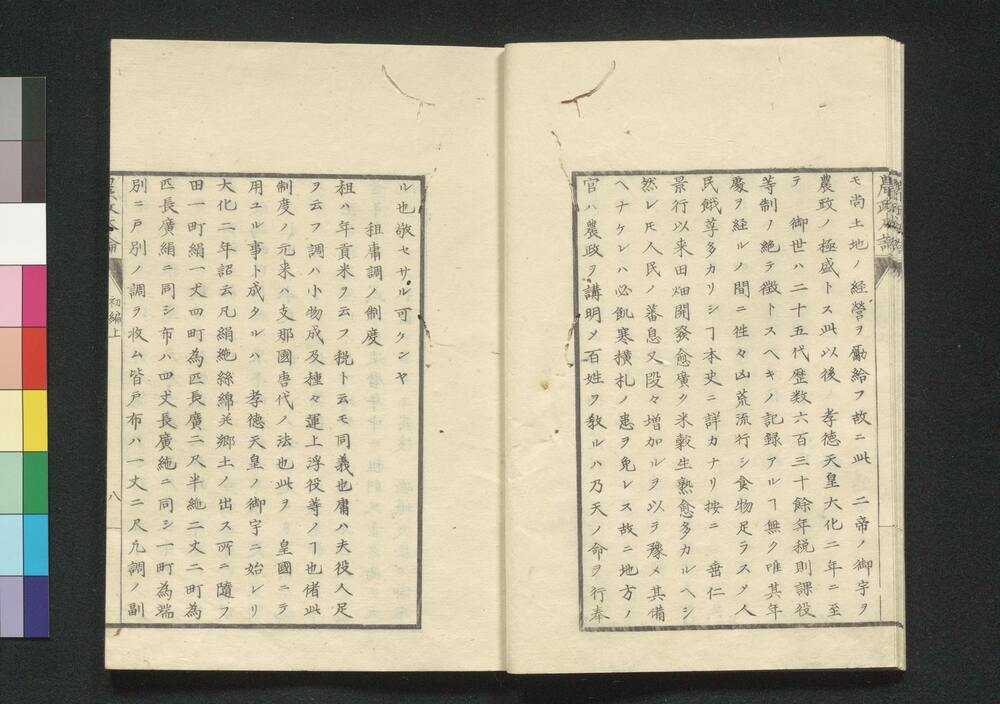 モ尚土地ノ經營ヲ勵給フ故ニ此　二帝ノ御宇ヲ
農政ノ極盛トス此以後ノ孝德天皇大化二年ニ至
テ　御世ハ二十五代歷数六百三十餘年税則課役
等制ノ絶テ徴トスヘキノ記録アルヿ無ク唯其年
慶ヲ経ルノ間ニ徃々凶荒流行シ食物足ラスノ人
民餓莩多カリシヿ本史ニ詳カナリ按ニ　垂仁
景行以来田畑開發愈廣ク米穀生熟愈多カルヘシ
然レ𪜈人民ノ蕃息又段々増加ルヲ以ラ豫メ其備
ヘナケレハ必飢寒横札ノ患ヲ免レス故ニ地方ノ
官ハ農政ヲ講明メ百姓ヲ敎ルハ乃天ノ命ヲ行奉
ル也敬セサル可ケンヤ
租庸調ノ制度
租ハ年貢米ヲ云フ税ト云モ同義也庸ハ夫役人足
ヲ云フ調ハ小物成及種々運上浮役等ノヿ也偖此
制度ノ元来ハ支那國唐代ノ法也此ヲ　皇國ニテ
用ユル事ト成タルハ　孝德天皇ノ御宇ニ始レリ
大化二年詔云凡絹絁絲綿共郷土ノ出ス所ニ隨フ
田一町絹一丈四町為匹長廣二尺半絁二丈二町為
匹長廣絹ニ同シ布ハ四丈長廣絁ニ同シ一町為端
別ニ戸別ノ調ヲ收ム皆戸布ハ一丈二尺凡調ノ副
初編上
八